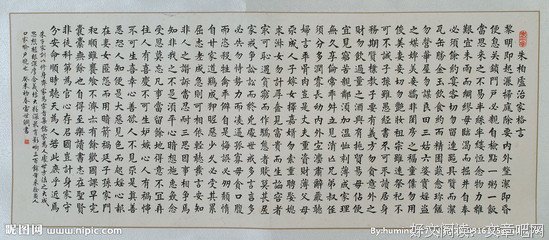 朱柏廬治家格言
黎明即起灑掃庭除要內外整潔既昏
便息關鎖門戶必親自檢點一粥一飯
當思來處不易半絲半縷恒念物力維
艱宜未雨而綢繆毋臨渴而掘井自奉
必須儉約宴客切勿留連器具質而潔
瓦缶勝金玉飲食約而精園蔬愈珍饈
勿營華屋勿謀良田三姑六婆實婬盜
之媒婢美妾嬌非閨房之福童僕勿用
俊美妻妾切勿艷妝祖宗雖遠祭祀不
可不誠子孫雖愚經書不可不讀居身
務期質樸教子要有義方勿貪意外之
財勿飲過量之酒與肩挑貿易毋佔便
宜見窮苦親鄰須加溫恤刻薄成家理
無久享倫常乖舛立見消亡兄弟叔侄
須分多潤寡長幼內外宜法肅辭嚴聽
婦言乖骨肉豈是丈夫重資財薄父母
不成人子嫁女擇佳婿毋索重聘娶媳
求淑女勿計厚奩見富貴而生諂容者
最可恥遇貧窮而作驕態者賤莫甚居
家戒爭訟訟則終凶處世戒多言言多
必失勿恃勢力而凌逼孤寡勿貪口腹
而恣殺生禽乖僻自是悔誤必多頹惰
自甘家道難成狎昵惡少久必受其累
屈志老成急則可相依輕聽發言安知
非人之譖訴當忍耐三思因事相爭焉
知非我之不是須平心暗想施惠無念
受恩莫忘凡事當留餘地得意不宜再
往人有喜慶不可生妒嫉心人有禍患
不可生喜幸心善欲人見不是真善
惡恐人知便是大惡見色而起婬心報
在妻女匿怨而用暗箭禍延子孫家門
和順雖饔飧不濟亦有餘歡國課早完
即囊橐無餘自得至樂讀書志在聖賢
非徒科第為官心存君國豈計身家守
分安命順時聽天為人若此庶乎近焉
昵图网 www.nipic.com
By:huming
好文阅读：文章吧网